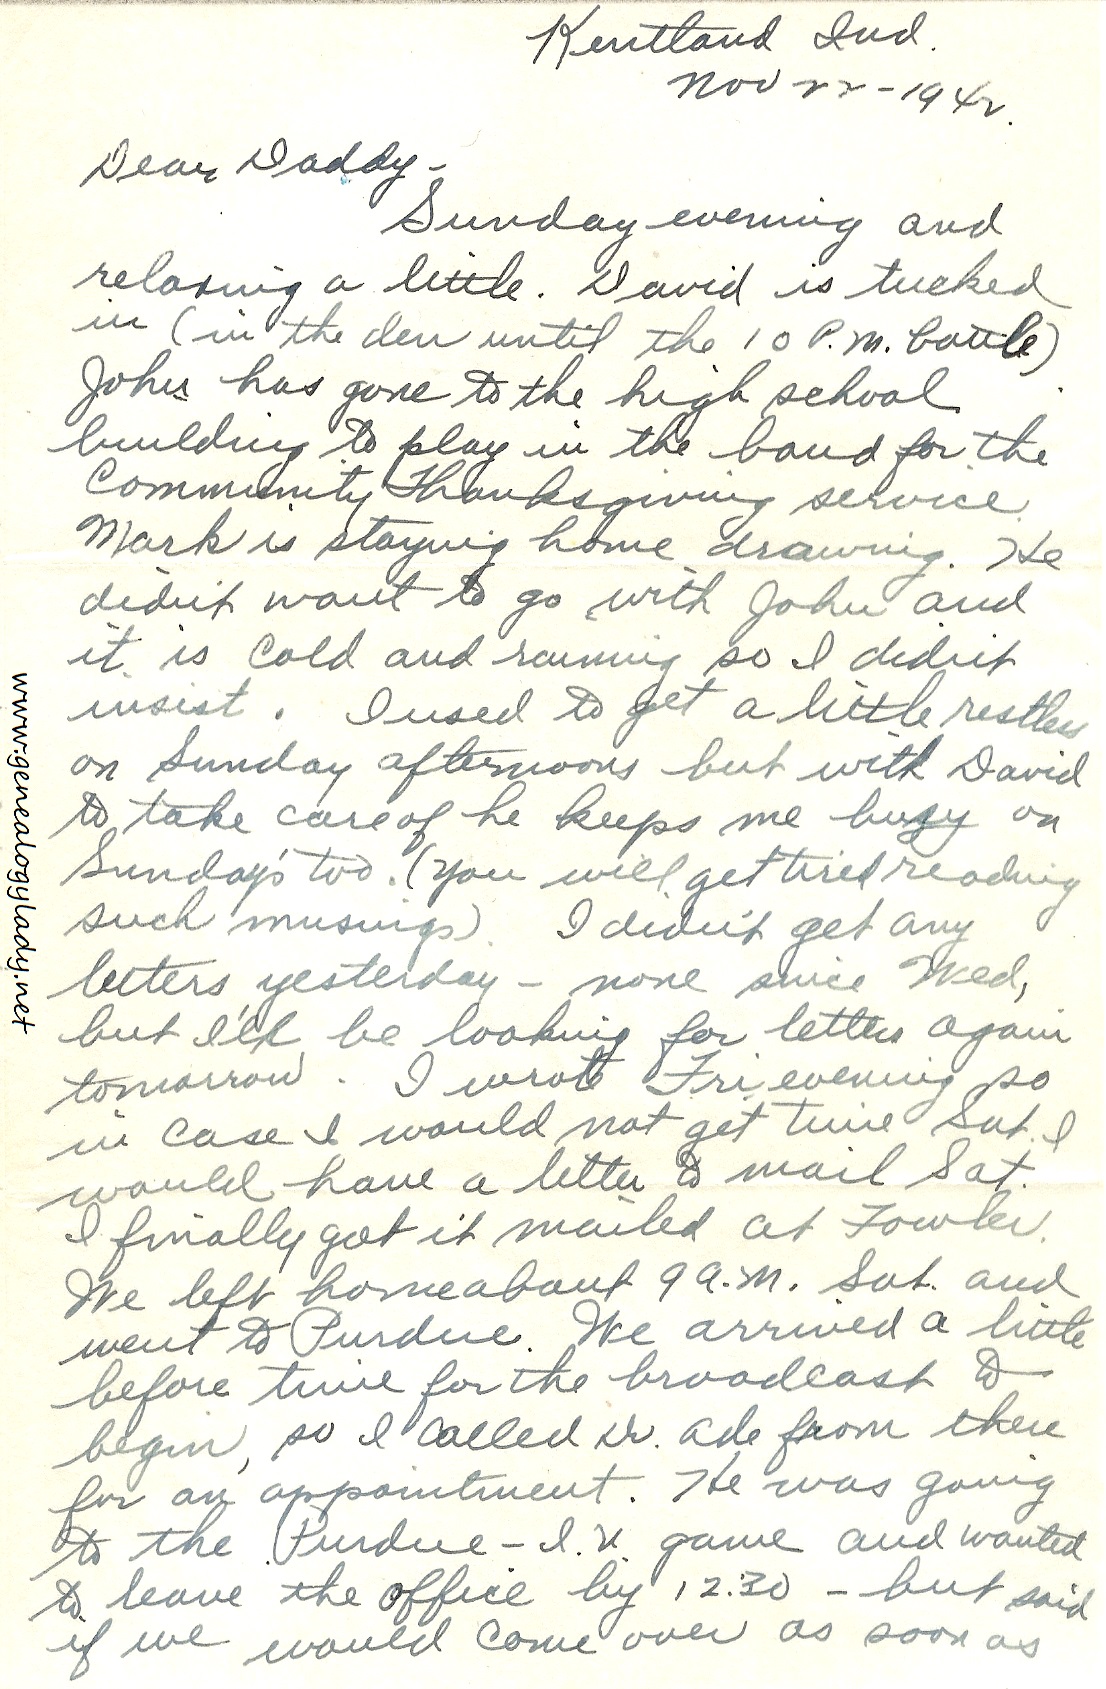 Kentland Ind.
Nov 22-1942.
Dear Daddy-
Sunday evening and
relaxing a little. David is tucked
in (in the den until the 10 P.M. bottle)
John has gone to the high school
building to play in the band for the
Community Thanksgiving service.
Mark is staying home drawing. He
didn't want to go with John and
it is cold and raining so I didn't
insist. I used to get a little restless
on Sunday afternoons but with David
to take care of he keeps me busy on
Sunday's too. (You will get tired reading
such musings). I didn't get any
letters yesterday - none since Wed,
but I'll be looking for letters again
tomorrow. I wrote Fri evening so
in case I would not get time Sat. I
would have a letter to mail Sat.
I finally got it mailed at Fowler.
We left home about 9 A.M. Sat. and
went to Purdue. We arrived a little
before time for the broadcast to
begin, so I called Dr. Ade from there
for an appointment. He was going
to the Purdue - I.U. game and wanted
to leave the office by 12:30 - but said
if we would come over as soon as
www.genealogylady.net